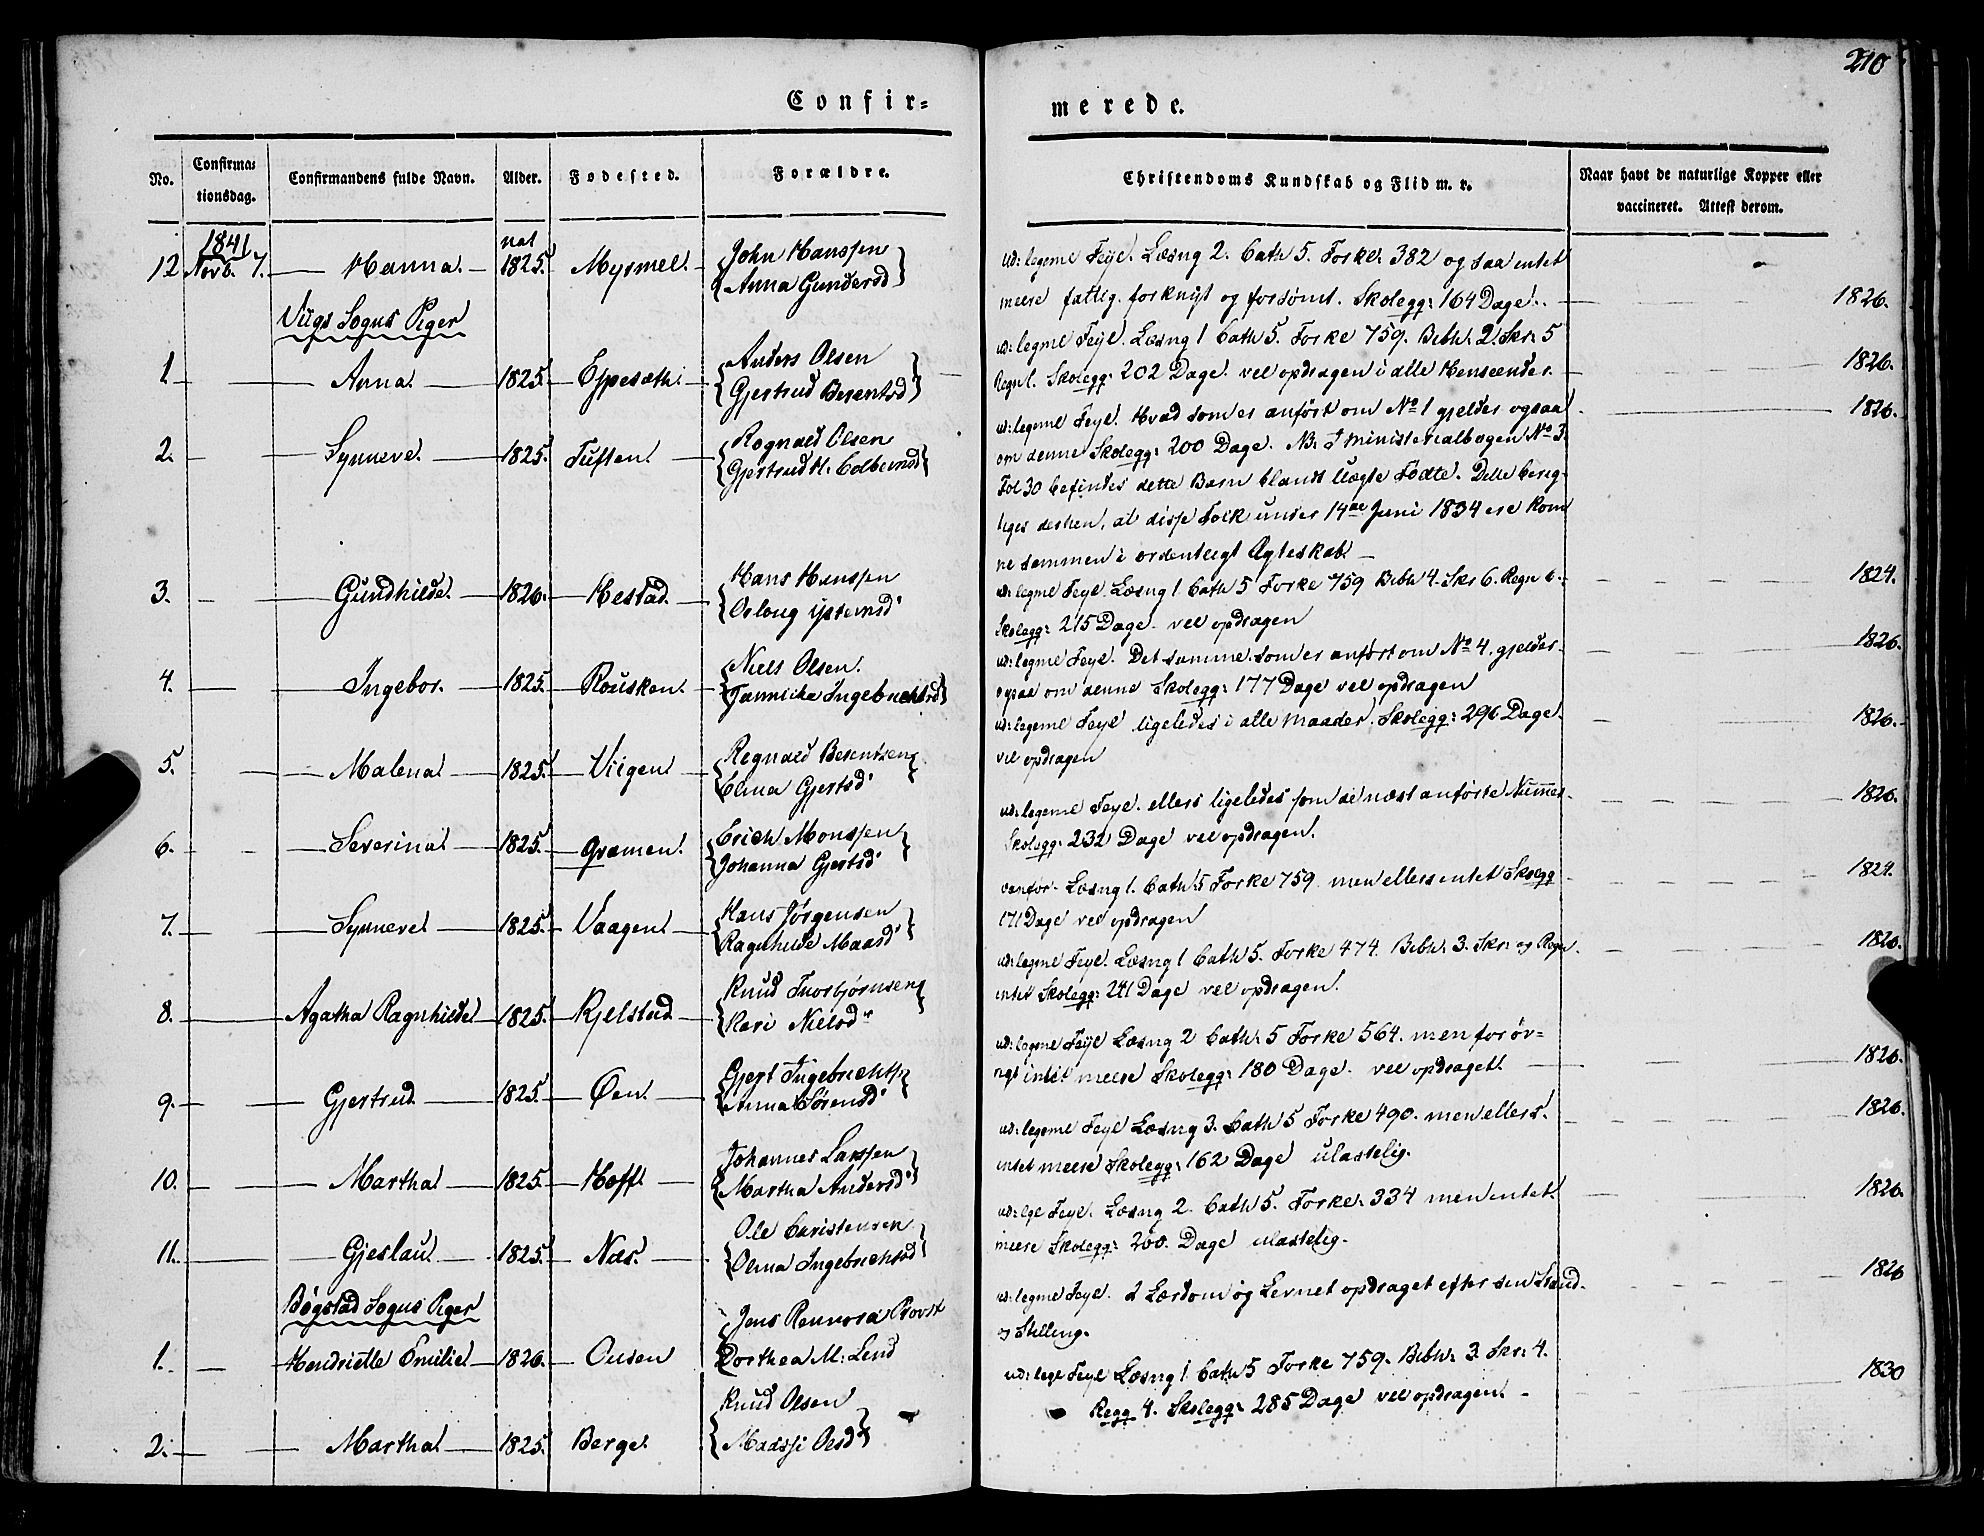 210
Confir=
merede.
No.
Confirma=
tionsdag.
Confirmandens fulde Navn.
Alder.
Fødested.
Forældre.
Christendoms Kundskab og Flid m. v.
Naar havt de naturlige Kopper eller
vaccineret. Attest derom.
1841 nat
12 Novb. 7. Hanna. 1825. Myrmel. John Hanssen
Anna Gundersd
ud: legeme Feyl. Læsng 2. Cath 5. Forkl. 382 og saa intet
meere fattig. forknyt og forsømt. Skolegg: 164 Dage. 1826.
Viigs Sogns Piger
1. Anna. 1825. Espesæth. Anders Olsen
Gjertrud Berentsd
ud: legme Feyl. Læsng 1 Cath 5. Forkl 759. Bibh: 2. Skr: 5
Regn 1. Skolegg: 202 Dage. vel opdragen i alle Henseender. 1826.
2. Synneve. 1825. Tuften. Rognald Olsen
Gjertrud M: Colbernsd
ud: legme Feyl. Hvad som er anført om No 1 gjelder ogsaa 1826.
om denne Skolegg: 200 Dage. NB: I Ministerialbogen No 3.
Fol 30 befindes dette Barn blandt Uægte Fødte. Dette berig-
tiges derhen, at disse Folk under 14de Juni 1834 ere kom
ne sammen i ordentligt Ægteskab.
3. Gundhilde. 1826. Hestad. Hans Hanssen
Oslaug
ud: legme Feyl. Læsng 1. Cath 5 Forkl 759 Bibh 4. Skr 6. Regn 6. 1824.
Skolegg: 215 Dage. vel opdragen
4. Ingebor. 1825. Rousken. Niels Olsen.
Jannicke Ingebrichtsd
ud: legme Feyl. Det samme som er anført om No 4. gjelder 1826.
ogsaa om denne Skolegg: 177 Dage vel opdragen
5. Malena 1825. Viigen Regnald Berentsen
Elena Gjertsd
ud: legeme Feyl ligeledes i alle Maader. Skolegg: 296 Dage. 1826.
vel opdragen
6. Severina 1825. Græmen. Erich Monssen
Johanna Gjertsd
ud: legeme Feyl. ellers ligeledes som de næst anførte Nummer. 1826.
Skolegg: 232 Dage vel opdragen.
7. Synneve 1825. Vaagen Hans Jørgensen
Ragnhilde Maasd
vanfør. Læsng 1. Cath: 5 Forkl 759 men ellers intet Skolegg 1824.
171 Dage vel opdragen
8. Agatha Ragnhilde 1825. Kjelstad Knud Thorbjørnsen
Kari Nielsd
ud: legme Feyl. Læsng 1 Cath 5. Forkl 474. Bibh: 3. Skr: og Regn. 1826.
intet Skolegg: 241 Dage vel opdragen.
9. Gjertrud 1825. Øen. Gjert Ingebrichts
Anna Sørensd
ud: legme Feyl Læsng 2 Cath: 5 Forkl 564. men forøv-
rigt intet meere Skolegg: 180 Dage. vel opdraget. 1826.
10. Martha 1825. Hoff. Johannes Larssen
Martha Andersd
ud: legeme Feyl Læsng 3. Cath 5 Forkl 490. men ellers 1826.
intet meere Skolegg: 162 Dage ulastelig.
11. Gjeslau 1825. Næs. Ole Christensen
Olina Ingebrichtsd
ud: lge Feyl. Læsng 2. Cath 5. Forkl: 334 men intet 1826.
meere Skolegg: 200. Dage ulastelig.
Bøgstad Sogns Piger
1. Hendriette Emilie 1826. Ousen Jens Rennord Provst
Dorthea M: Lind
ud: legme Feyl. I Lærdom og Levnet opdraget efter sin Stand 1826
og Stilling.
2. Martha 1825. Berge. Knud Olsen
Madssi Olsd
ud: lege Feyl Læsng 1. Cath 5 Forkl 759. Bibh: 3. Skr: 4. 1830
Regg 4. Skolegg: 285 Dage vel opdragen.